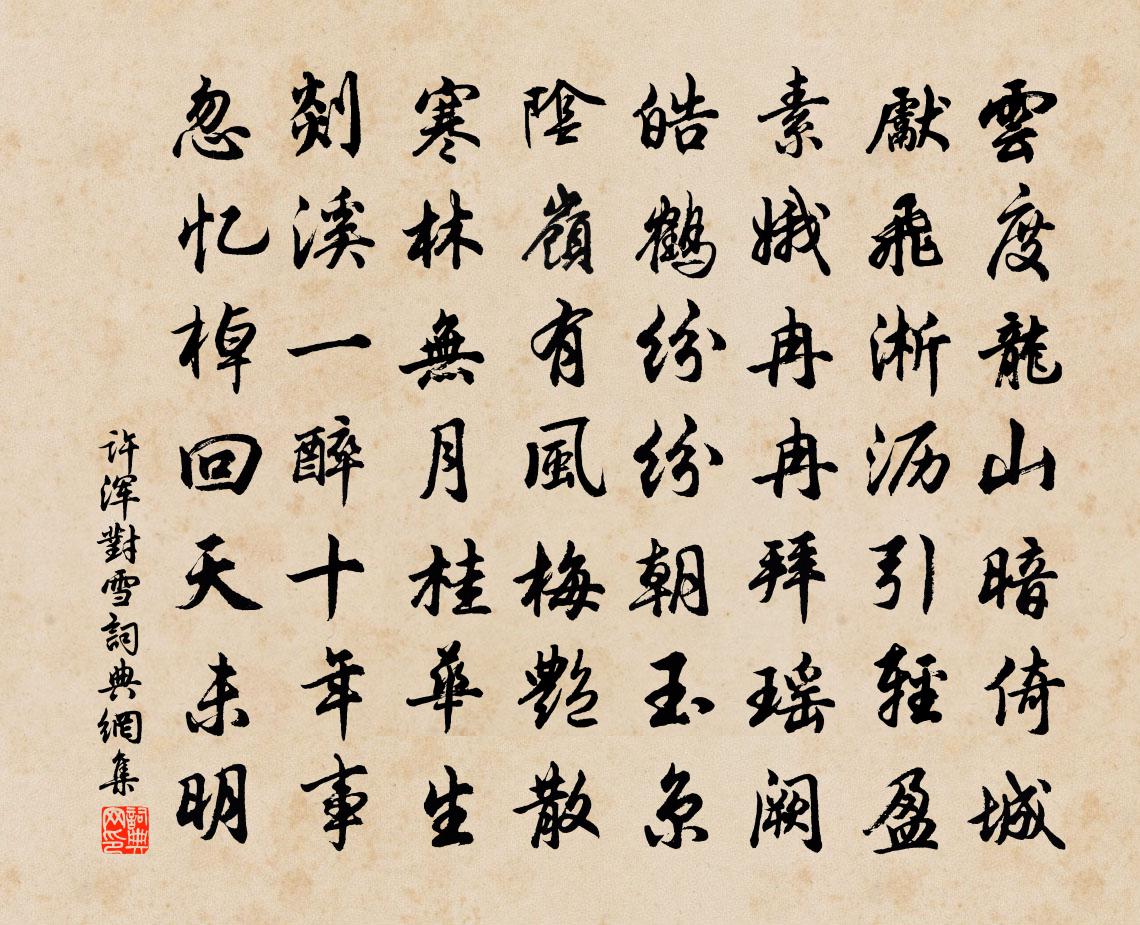 雲度龍山暗倚城
獻飛淅沥引輕盈
素娥冉冉拜瑶闕
皓鶴紛紛朝玉京
陰嶺有風梅艷散
寒林無月桂華生
剡溪一醉十年事
忽忆棹回天未明
许浑對雪詞典網集
詞典网印